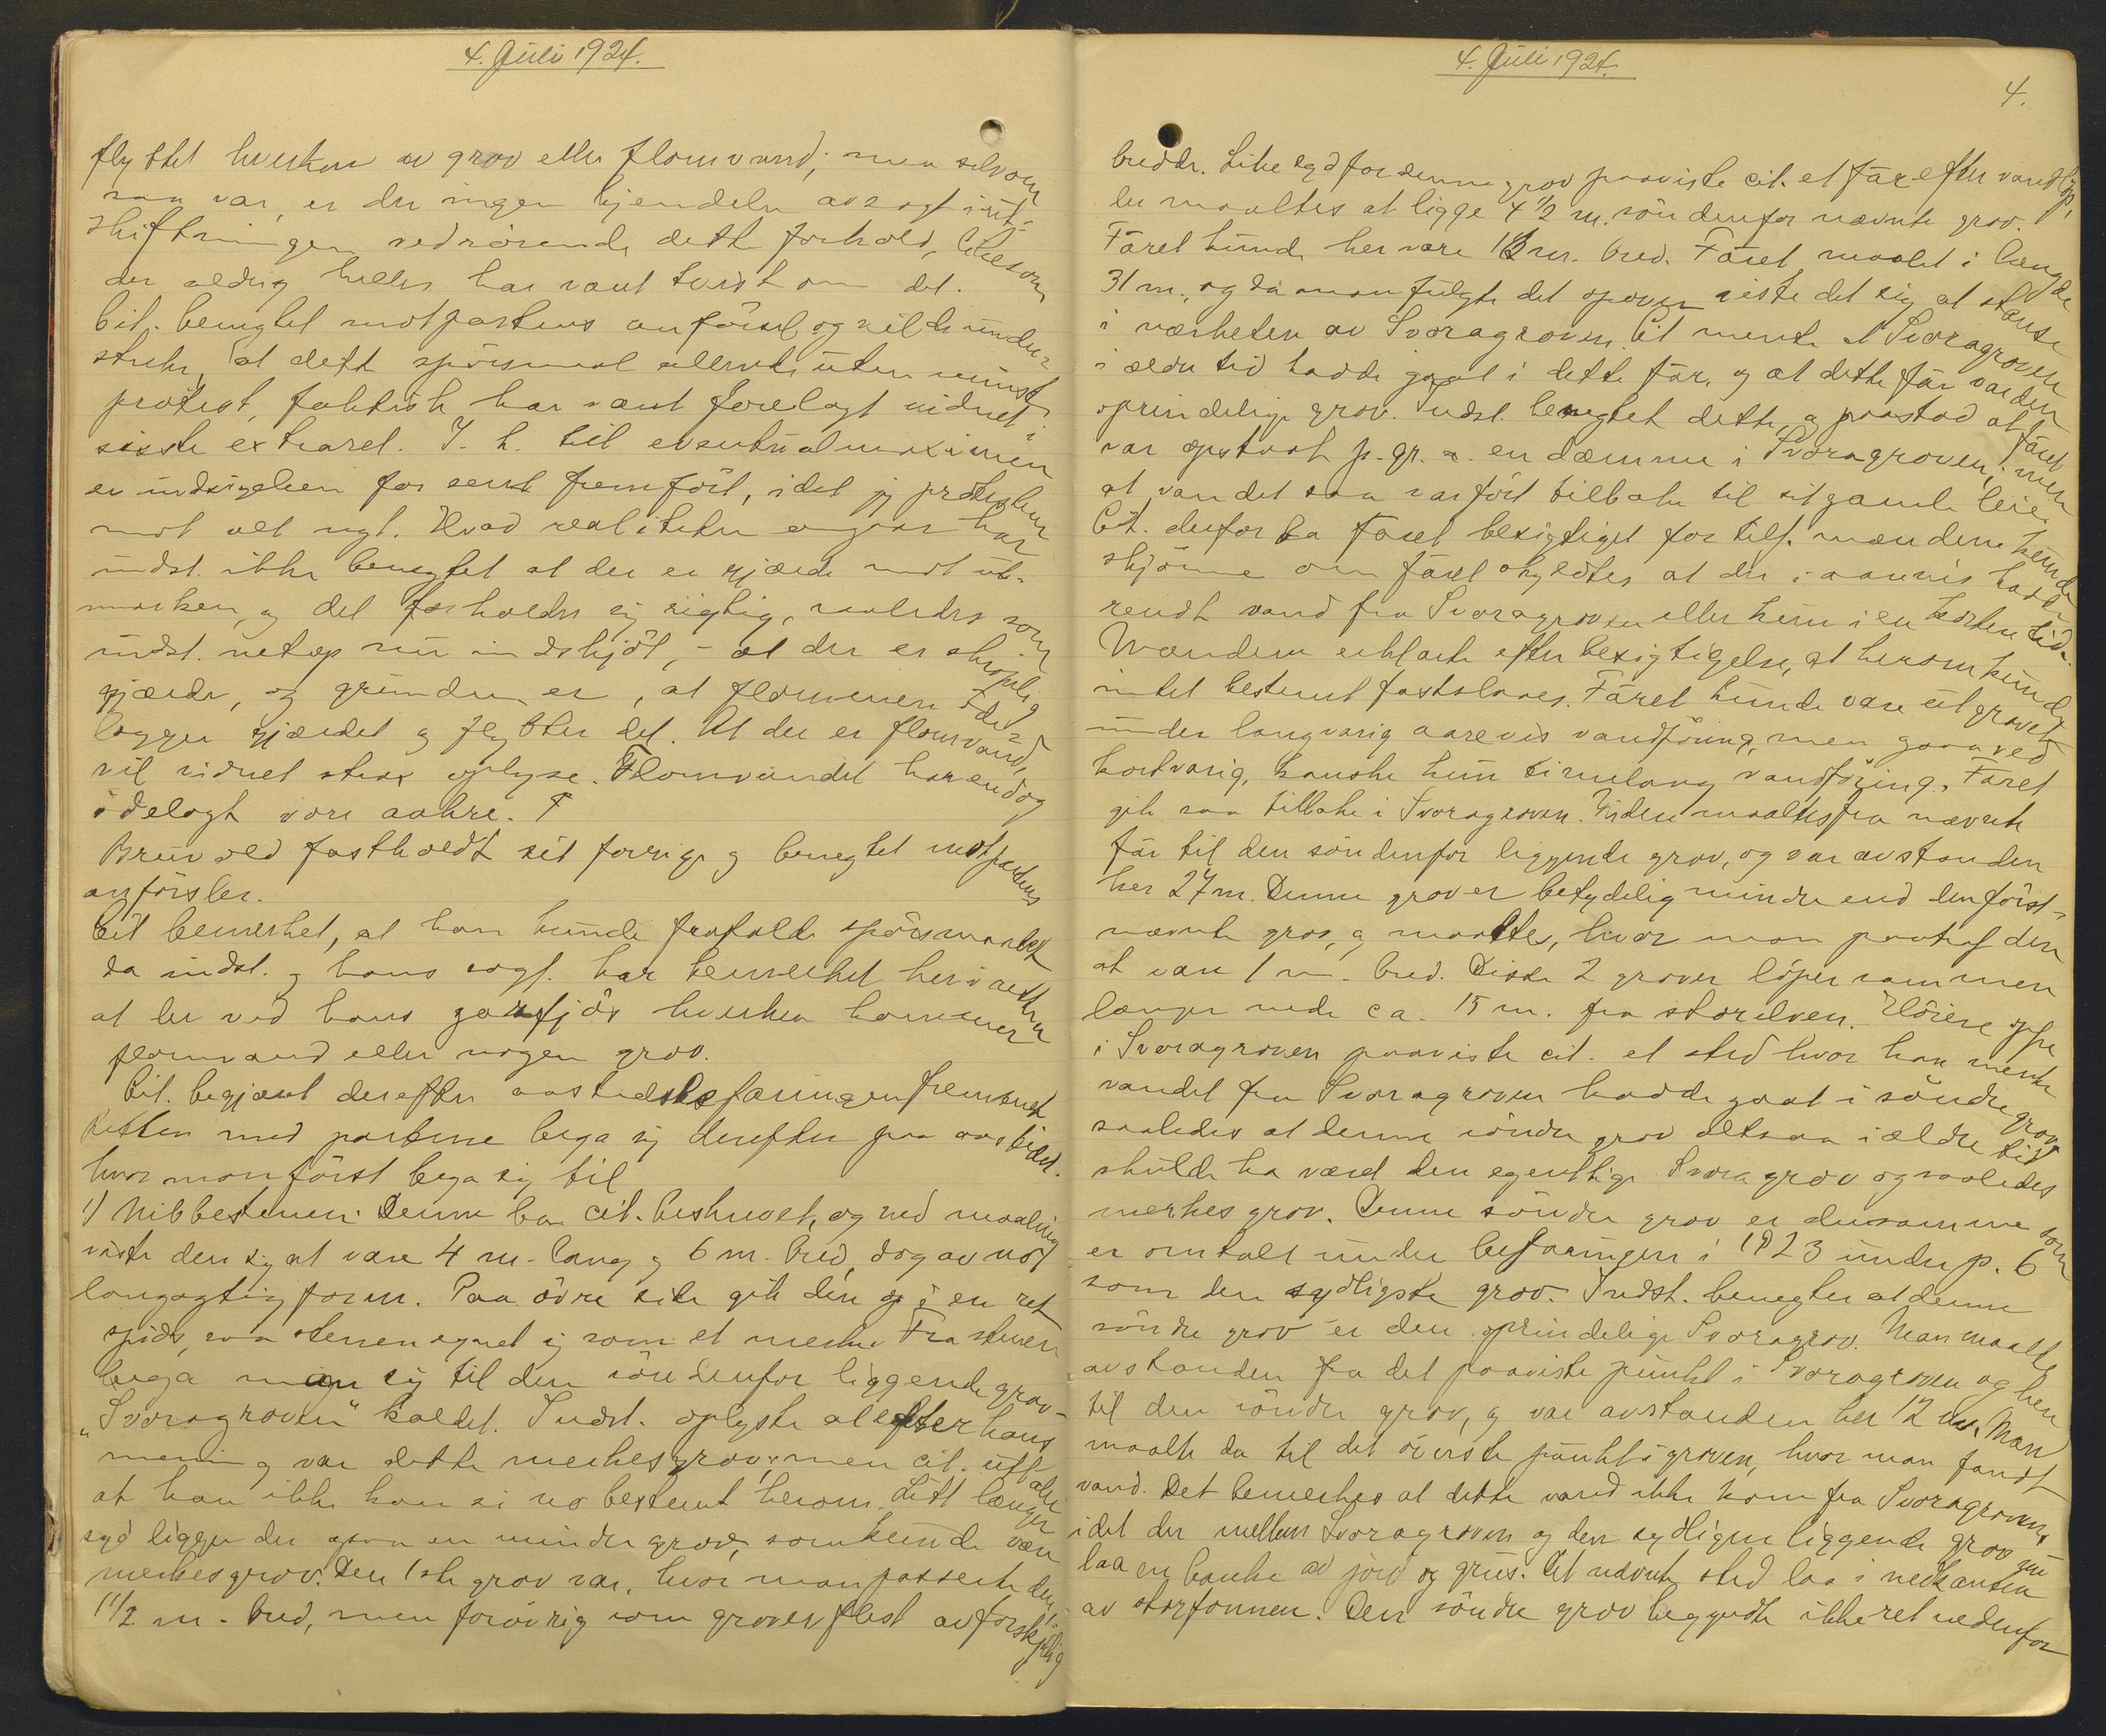 4. Juli 1924.
flyttet hverken av grov eller flomvand; men selvom
saa var, er der ingen kjendelse avsagt i ut-
skiftningen vedrörende dette forhold, likesom
der aldrig heller har vært tvist om det.
Cit. benegtet motpartens anförsel og vilde under-
streke, at dette spörsmaal allerede uten mindste
protest, faktisk har været forelagt vidnet i
sidste extraret. I. h. til eventualmaximen
er indsigelsen for sent fremfört, idet jeg protesterer
mot alt nyt. Hvad realiteten angaar har
indst. ikke benegtet at der er gjærde mot ut-
marken, og det forholder sig rigtig, saaledes som
indst. netop nu indskjöt, - at der er skröpelig
gjærde, og grunden er, at flommen öde-
lægger gjærdet og flytter det. At der er flomvand,
vil vidnet strax oplyse. Flomvandet har endog
ödelagt vore aakre.
Brunvold fastholdt sit forrige og benegtet motpartens
anförsler.
Cit bemerket, at han kunde frafalde spörsmaalet
da indst. og hans sagf. har bemerket her i retten
at der ved hans gaasfjös hverken kommer
flomvand eller nogen grov.
Cit. begjært derefter aastedsbefaringen fremmet
Retten med parterne bega sig derefter paa aastedet.
hvor man först bega sig til
1) Nibbestenen. Denne ba cit. beskrevet, og ved maaling
viste den sig at være 4 m. lang og 6 m. bred, dog av noget
langagtig form. Paa övre side gik den op i en ret
spids, saa stenen egnet sig som et merke Fra stenen
bega man sig til den söndenfor liggende grov -
"Svoragroven" kaldet. Indst. oplyste at efter hans
mening var dette merkesgrov, men cit. uttalte
at han ikke kan si no bestemt herom. Litt længer
syd ligger der ogsaa en mindre grov, som kunde være
merkesgrov. Den 1ste grov var, hvor man passerte den,
1 1/2 m. bred, men forövrig som grover flest av forskjellig
4. Juli 1924.
4.
bredde. Like syd for denne grov paaviste cit. et far efter vandlöp,
der maaltes at ligge 4 1/2 m. söndenfor nævnte grov.
Faret kunde her være 1 1/2 m. bred. Faret maalt i længde
31 m., og da man fulgte det opover viste det sig at stanse
i nærheten av Svoragroven. Cit mente at Svoragroven
i ældre tid hadde gaat i dette far, og at dette far var den
oprindelige grov. Indst. benegtet dette, og paastod at faret
var opstaat p. gr. a. en dæmme i Svoragroven, men
at vandet saa var fört tilbake til sit gamle leie.
Cit. derfor ba faret besigtiget for tilf. mændene kunde
skjönne om faret skyldtes at der i aarvis hadde
rendt vand fra Svoragroven eller kun i en kortere tid.
Mændene erklærte efter besigtigelse, at herom kunde
intet bestemt fastslaaes. Faret kunde være utgravet
under langvarig aarevis vandföring, men ogsaa ved
kortvarig, kanske kun timelang vandföring. Faret
gik saa tilbake i Svoragroven. Videre maaltes fra nævnte
far til den söndenfor liggende grov, og var avstanden
her 27 m. Denne grov er betydelig mindre end den först-
nævnte grov, og maaltes, hvor man paatraf den
at være 1 m. bred. Disse 2 grover löper sammen
længer nede ca. 15 m. fra storelven. Höiere oppe
i Svoragroven paaviste cit. et sted hvor han mente
vandet fra Svoragroven hadde gaat i söndre grov
saaledes at denne söndre grov altsaa i ældre tid
skulde ha været den egentlige Svoragrov og saaledes
merkesgrov. Denne söndre grov er densamme som
er omtalt under befaringen i 1923 under p. 6
som den sydligste grov. Indst. benegter at denne
söndre grov er den oprindelige Svoragrov. Man maalte
avstanden fra det paaviste punkt i Svoragroven og hen
til den söndre grov, og var avstanden her 12 m. Man
maalte da til det överste punkt i groven, hvor man fandt
vand. Det bemerkes at dette vand ikke kom fra Svoragroven,
idet der mellem Svoragroven og den sydligere liggende grov nu
laa en banke av jord og grus. Det nævnte sted laa i nedkanten
av storfonnen. Den söndre grov begyndte ikke ret nedenfor